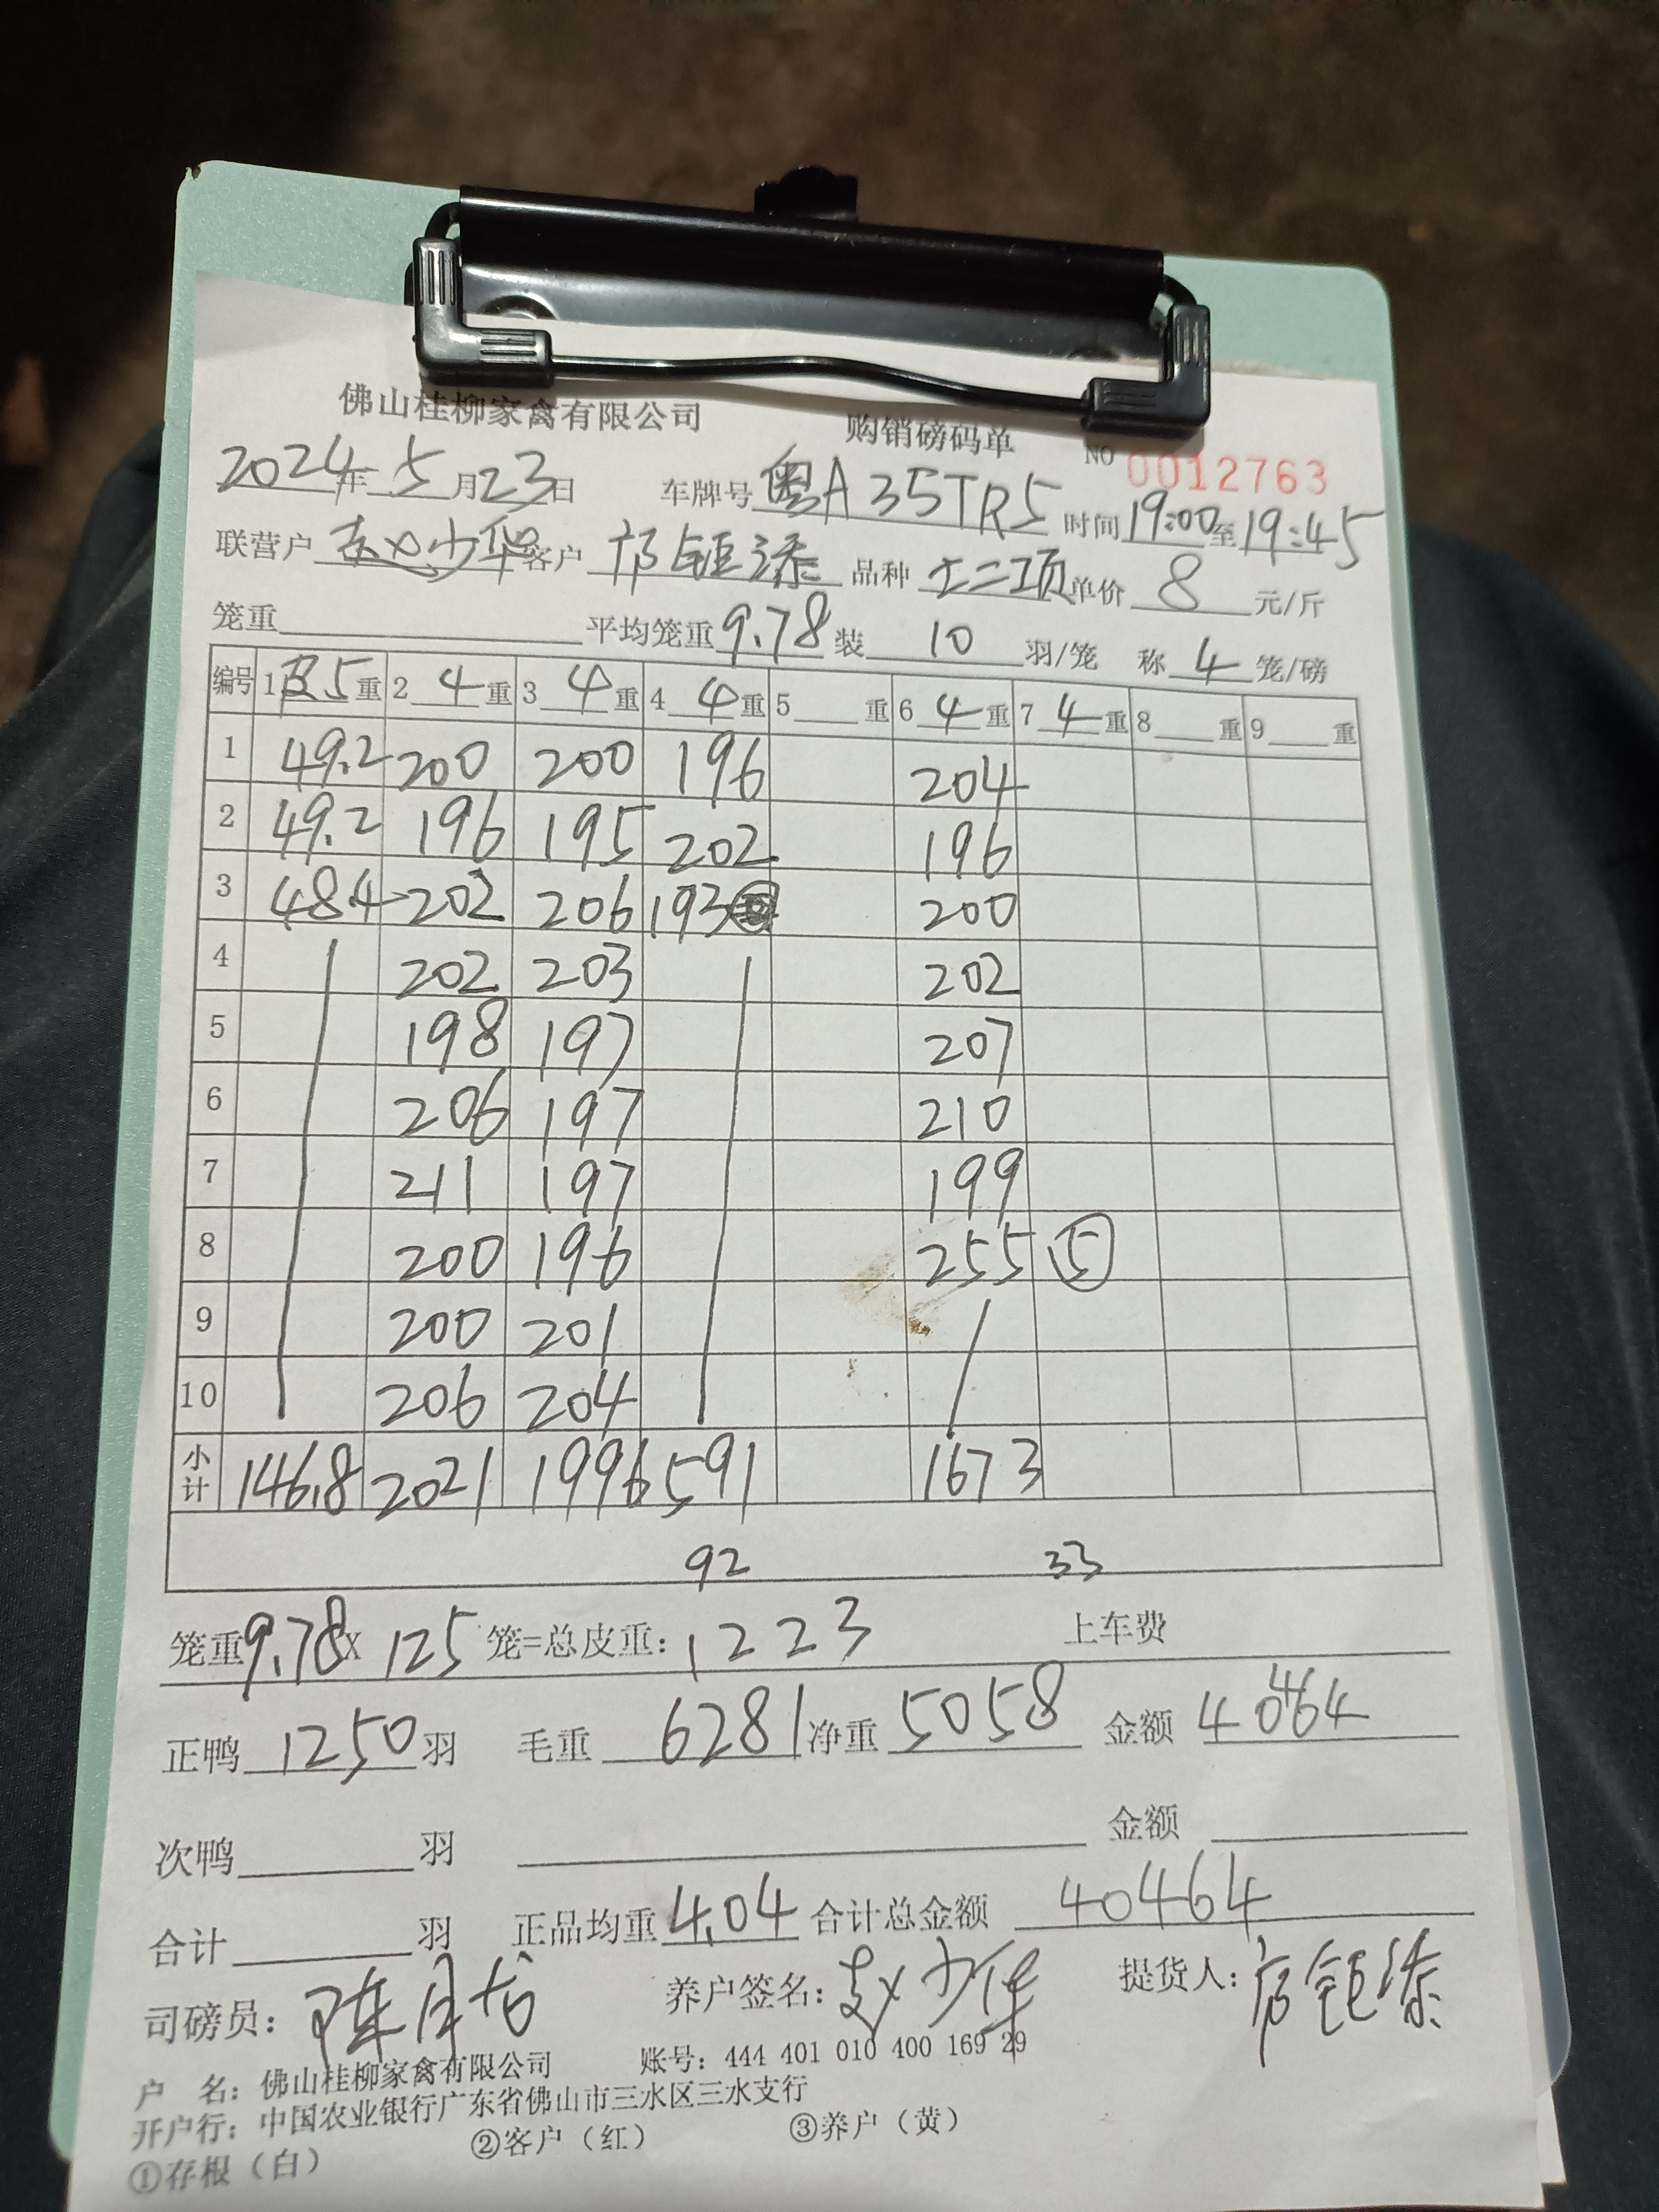 佛山桂柳家禽有限公司 购销磅码单 NO 0012763
2024年 5月23日 车牌号 粤A35TR5 时间 19:00至19:45
联营户 赵少华 客户 邝钜添 品种 土二项 单价 8 元/斤
笼重 平均笼重 9.78 装 10 羽/笼 称 4 笼/磅
编号 1 皮5 重 2 4 重 3 4 重 4 4 重 5 重 6 4 重 7 4 重 8 重 9 重
1 49.2 200 200 196 204
2 49.2 196 195 202 196
3 48.4 202 206 193 200
4 202 203 202
5 198 197 207
6 206 197 210
7 211 197 199
8 200 196 255 ⑤
9 200 201
10 206 204
小计 146.8 2021 1996 591 1673
92 33
笼重 9.78 X 125 笼=总皮重: 1223 上车费
正鸭 1250 羽 毛重 6281 净重 5058 金额 40464
次鸭 羽 金额
合计 羽 正品均重 4.04 合计总金额 40464
司磅员: 陈 养户签名: 赵少华 提货人: 邝钜添
户 名: 佛山桂柳家禽有限公司 账号: 444 401 010 400 169 29
开户行: 中国农业银行广东省佛山市三水区三水支行
①存根（白） ②客户（红） ③养户（黄）